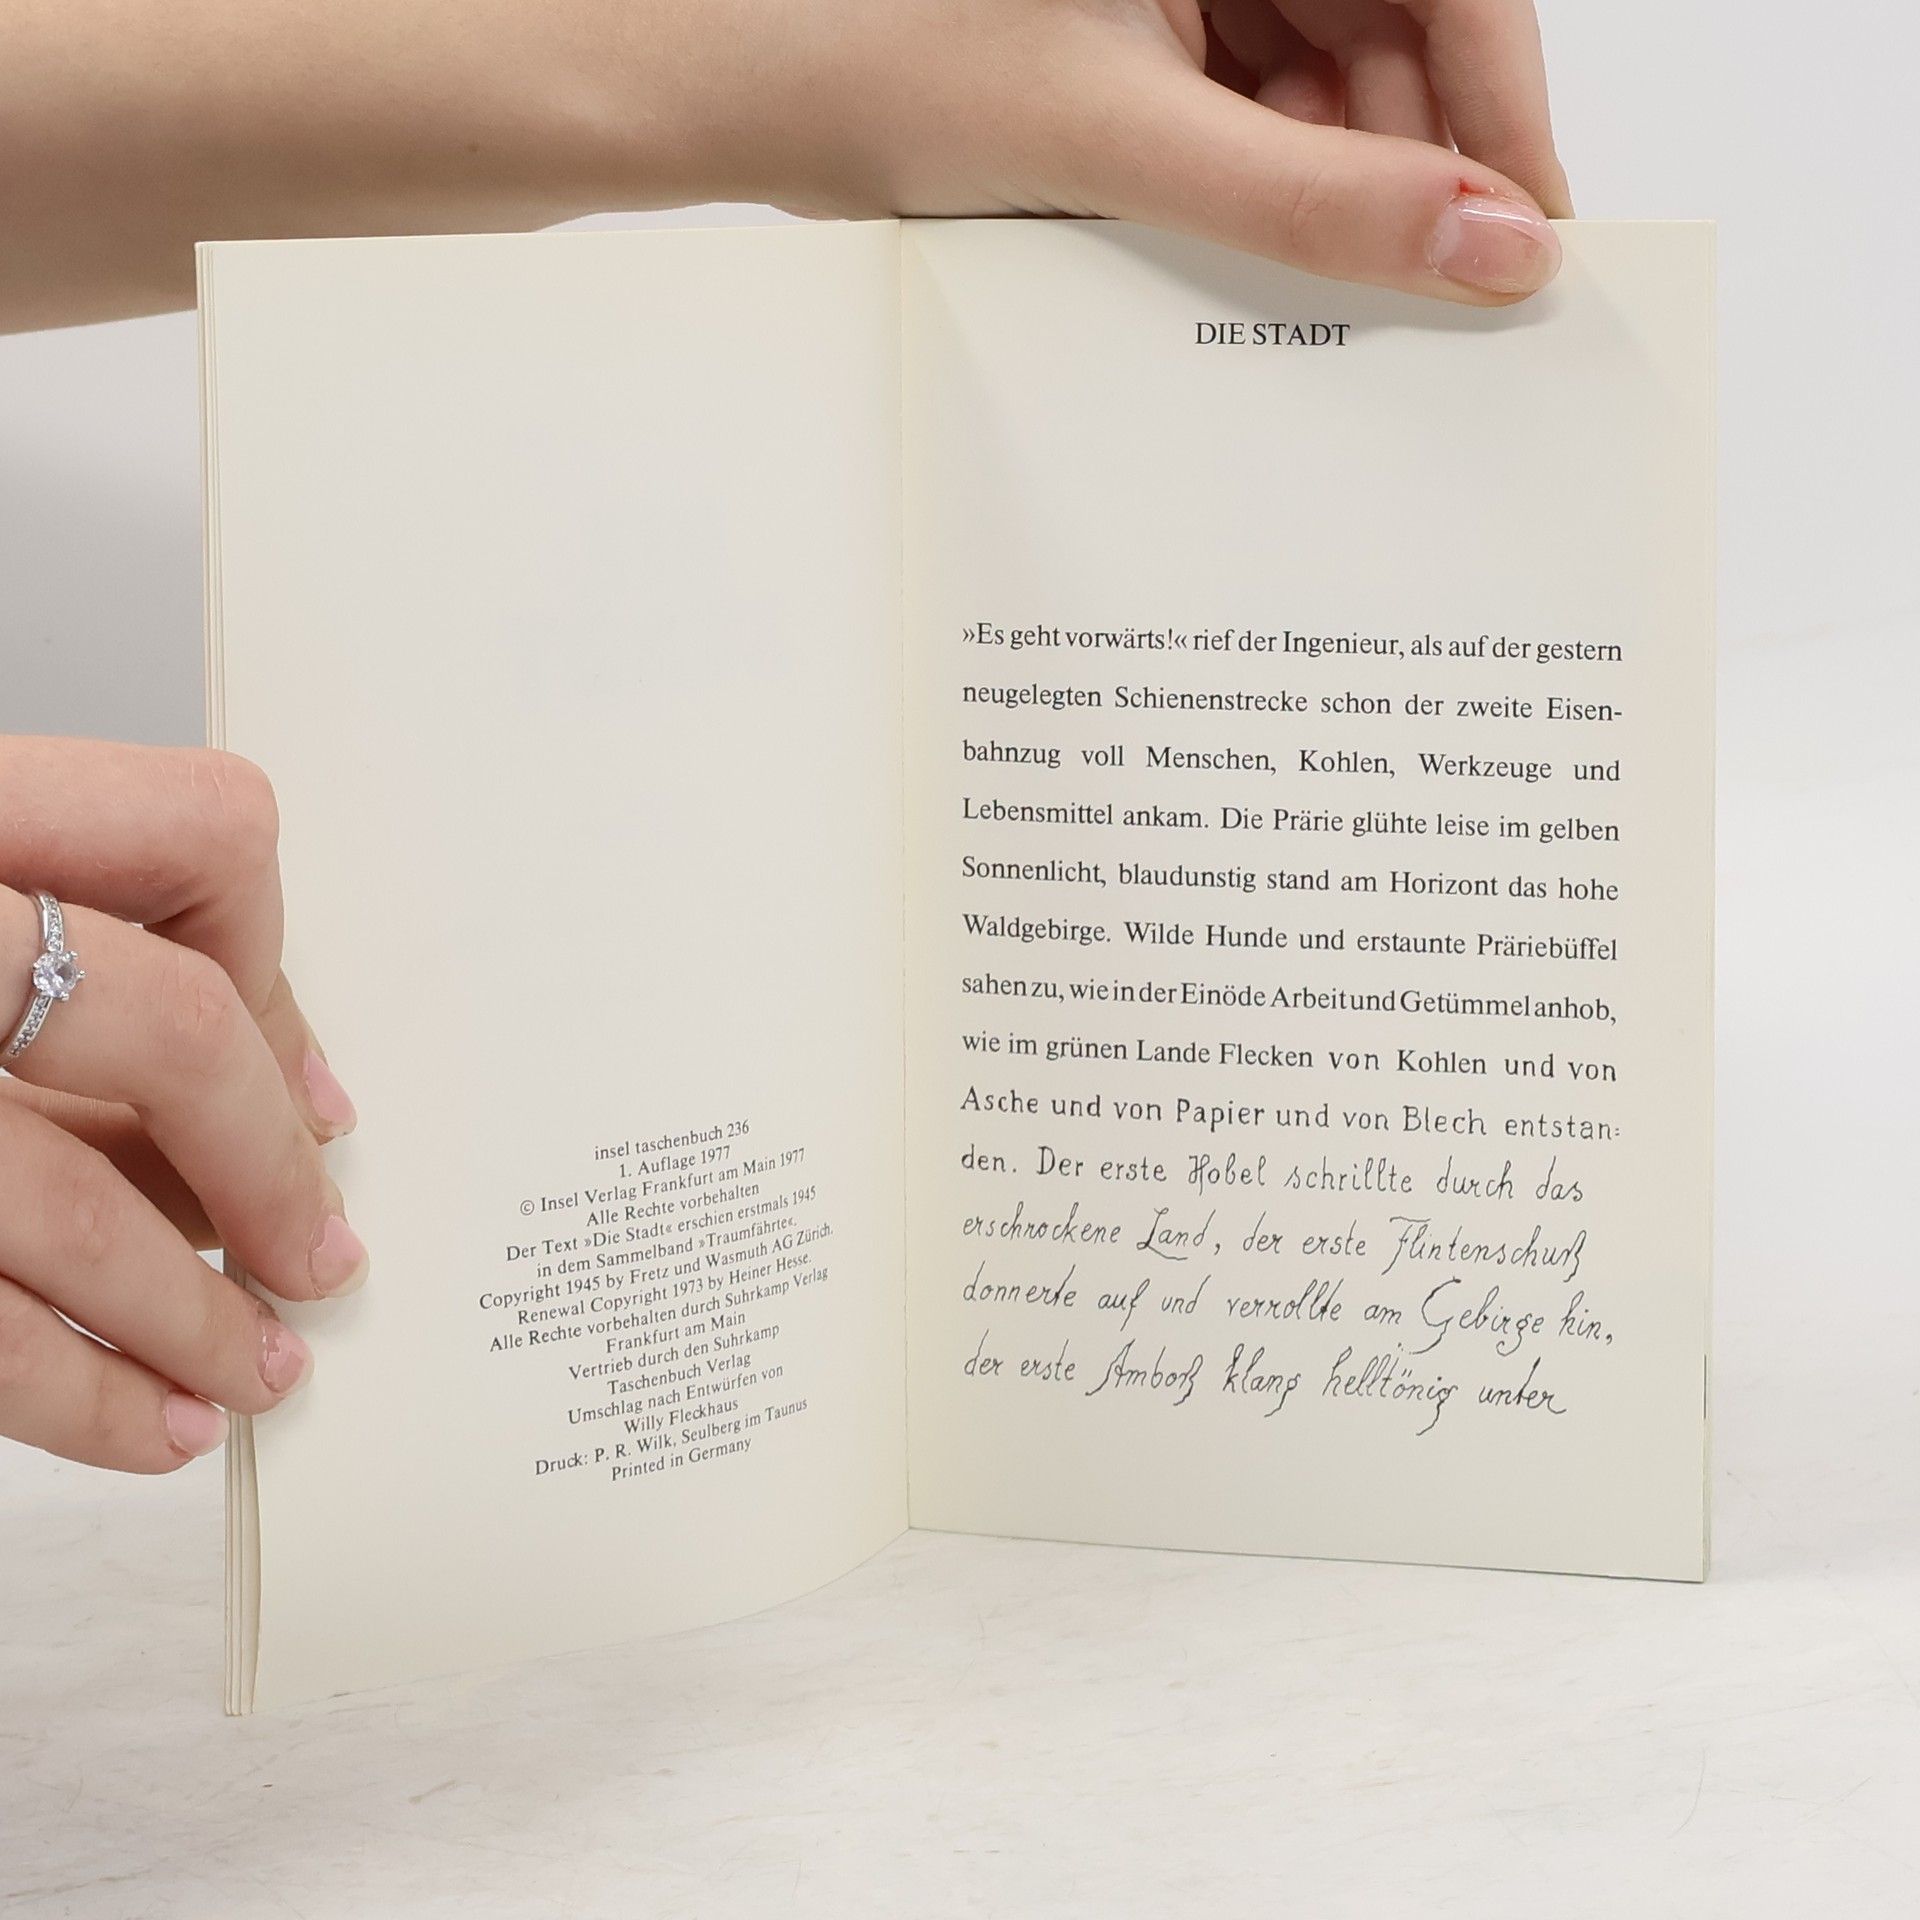 insel taschenbuch 236
1. Auflage 1977
© Insel Verlag Frankfurt am Main 1977
Alle Rechte vorbehalten
Der Text »Die Stadt« erschien erstmals 1945
in dem Sammelband »Traumfährte«.
Copyright 1945 by Fretz und Wasmuth AG Zürich.
Renewal Copyright 1973 by Heiner Hesse.
Alle Rechte vorbehalten durch Suhrkamp Verlag
Frankfurt am Main
Vertrieb durch den Suhrkamp
Taschenbuch Verlag
Umschlag nach Entwürfen von
Willy Fleckhaus
Druck: P. R. Wilk, Seulberg im Taunus
Printed in Germany
DIE STADT
»Es geht vorwärts!« rief der Ingenieur, als auf der gestern
neugelegten Schienenstrecke schon der zweite Eisen-
bahnzug voll Menschen, Kohlen, Werkzeuge und
Lebensmittel ankam. Die Prärie glühte leise im gelben
Sonnenlicht, blaudunstig stand am Horizont das hohe
Waldgebirge. Wilde Hunde und erstaunte Präriebüffel
sahen zu, wie in der Einöde Arbeit und Getümmel anhob,
wie im grünen Lande Flecken von Kohlen und von
Asche und von Papier und von Blech entstan=
den. Der erste Hobel schrillte durch das
erschrockene Land, der erste Flintenschuß
donnerte auf und verrollte am Gebirge hin,
der erste Amboß klang helltönig unter